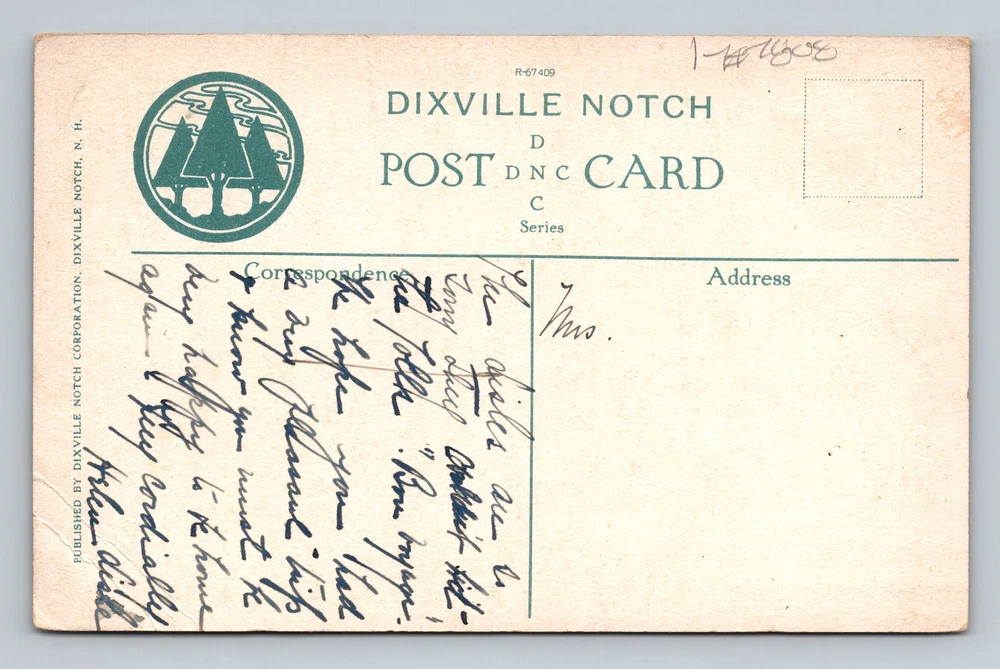 1-#7808
R-67409
DIXVILLE NOTCH
POST D DNC C CARD
Series
PUBLISHED BY DIXVILLE NOTCH CORPORATION, DIXVILLE NOTCH, N. H.
Correspondence
Address
Mrs.
The are to
the folks. "Bon voyage.
We hope you had
a very pleasant trip
& know you must be
very happy to be home
again. Very cordially
Helen